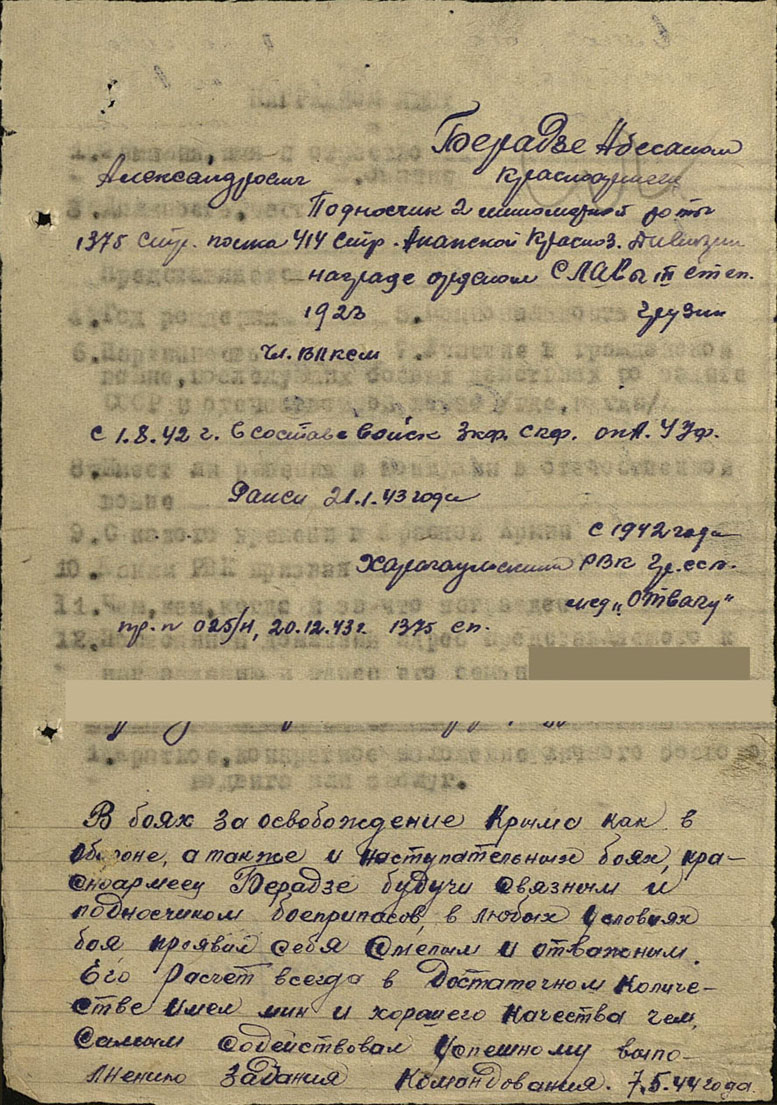 НАГРАДНОЙ ЛИСТ
Берадзе Абесалом
Александрович Красноармеец
Подносчик 2 минометной роты
1375 стр. полка 414 стр. Анапской Красноз. Дивизии
Представляется
награде орденом СЛАВЫ III степ.
4. Год рождения 1923 5. Национальность Грузин
6. Партийность Чл. ВЛКСМ 7. Участие в гражданской
войне, последующих боевых действиях по защите
СССР и отечественной войне /где, когда/
с 1.8.42 г. в составе войск Зкф. Скф. опА. 4 Уф.
8. Имеет ли ранения и контузии в отечественной
войне Ранен 21.1.43 года
9. С какого времени в Красной Армии с 1942 года
10. Каким РВК призван Харагаульским РВК Гр.сср.
11. Чем, кем, когда и за что награжден мед „Отвагу"
пр. п 025/н, 20.12.43г. 1375 сп.
12. домашний адрес представляемого к
награждению и адрес его семьи
1. Краткое, конкретное изложение личного боевого
подвига или заслуг.
В боях за освобождение Крыма как в
обороне, а также и наступательных боях, кра-
сноармеец Берадзе будучи связным и
подносчиком боеприпасов, в любых условиях
боя проявил себя смелым и отважным.
Его расчет всегда в достаточном количе-
стве имел мин и хорошего качества чем,
самым содействовал успешному выпо-
лнению задания командования. 7.5.44 года.